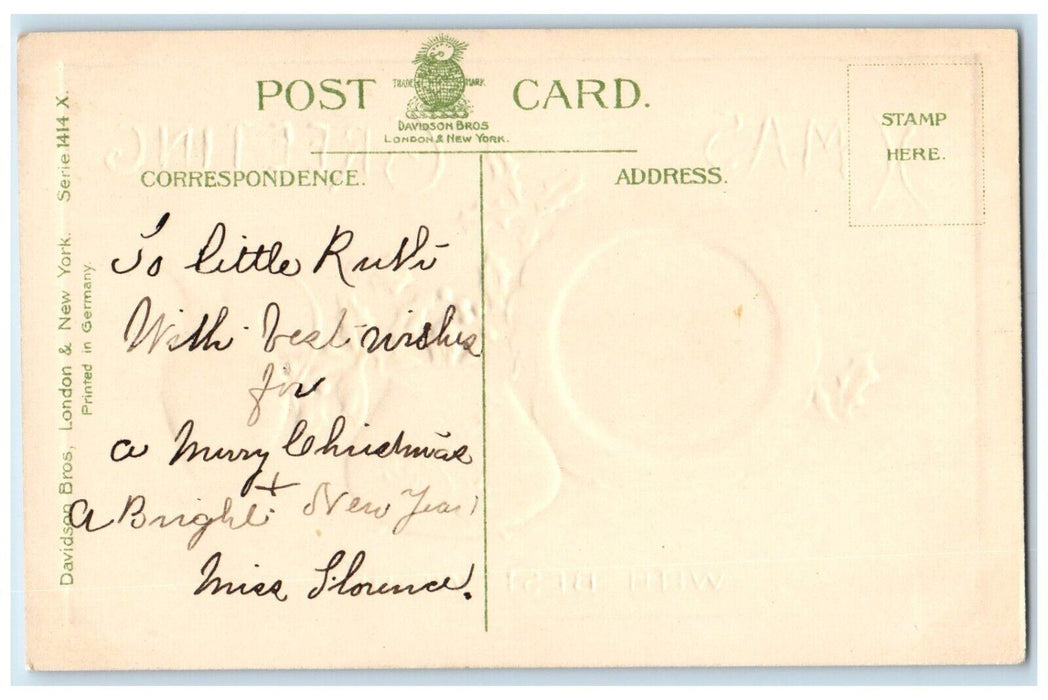 POST CARD.
TRADE MARK
DAVIDSON BROS
LONDON & NEW YORK.
STAMP
HERE.
CORRESPONDENCE.
ADDRESS.
To little Ruth
With best wishes
for
a Merry Christmas
+
a Bright New Year
Miss Florence.
Davidson Bros, London & New York. Serie 1414 X.
Printed in Germany.
XMAS GREETING
WITH BEST